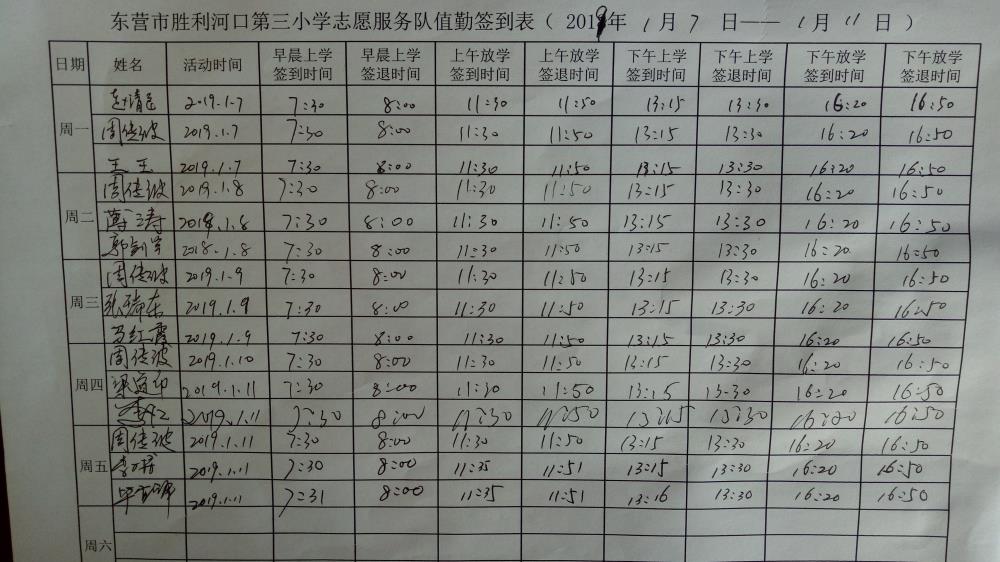 东营市胜利河口第三小学志愿服务队值勤签到表（ 2019年 1月 7 日—— 1月 11 日 ）
日期 姓名 活动时间 早晨上学签到时间 早晨上学签退时间 上午放学签到时间 上午放学签退时间 下午上学签到时间 下午上学签退时间 下午放学签到时间 下午放学签退时间
周一 2019.1.7 7:30 8:00 11:30 11:50 13:15 13:30 16:20 16:50
周佳波 2019.1.7 7:30 8:00 11:30 11:50 13:15 13:30 16:20 16:50
王王 2019.1.7 7:30 8:00 11:30 11:50 13:15 13:30 16:20 16:50
周二 周佳波 2019.1.8 7:30 8:00 11:30 11:50 13:15 13:30 16:20 16:50
2019.1.8 7:30 8:00 11:30 11:50 13:15 13:30 16:20 16:50
郭剑军 2018.1.8 7:30 8:00 11:30 11:50 13:15 13:30 16:20 16:50
周三 周佳波 2019.1.9 7:30 8:00 11:30 11:50 13:15 13:30 16:20 16:50
张瑞东 2019.1.9 7:30 8:00 11:30 11:50 13:15 13:30 16:20 16:50
马红霞 2019.1.9 7:30 8:00 11:30 11:50 13:15 13:30 16:20 16:50
周四 周佳波 2019.1.10 7:30 8:00 11:30 11:50 13:15 13:30 16:20 16:50
2019.1.11 7:30 8:00 11:30 11:50 13:15 13:30 16:20 16:50
2019.1.11 7:30 8:00 11:30 11:50 13:15 13:30 16:20 16:50
周五 周佳波 2019.1.11 7:30 8:00 11:30 11:50 13:15 13:30 16:20 16:50
2019.1.11 7:30 8:00 11:35 11:51 13:15 13:30 16:20 16:50
2019.1.11 7:31 8:00 11:35 11:51 13:16 13:30 16:20 16:50
周六